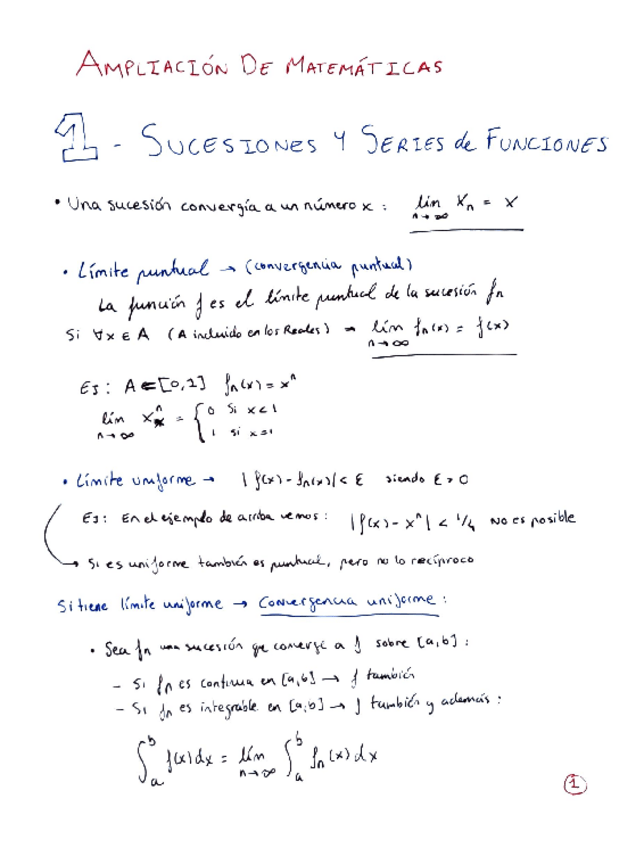 AMPLIACIÓN DE MATEMÁTICAS
1 - SUCESIONES Y SERIES de FUNCIONES
• Una sucesión convergía a un número x : lím n→∞ Xn = X
• Límite puntual → (convergencia puntual)
La función f es el límite puntual de la sucesión fn
Si ∀x ∈ A (A incluido en los Reales) → lím n→∞ fn(x) = f(x)
EJ: A = [0,1] fn(x) = x^n
lím n→∞ x^n = { 0 si x<1
1 si x=1
• Límite uniforme → |f(x) - fn(x)| < ε siendo ε > 0
EJ: En el ejemplo de arriba vemos: |f(x) - x^n| < 1/4 No es posible
→ Si es uniforme también es puntual, pero no lo recíproco
Si tiene límite uniforme → Convergencia uniforme :
• Sea fn una sucesión que converge a f sobre [a,b] :
- Si fn es continua en [a,b] → f también
- Si fn es integrable en [a,b] → f también y además :
∫_a^b f(x)dx = lím n→∞ ∫_a^b fn(x)dx
1